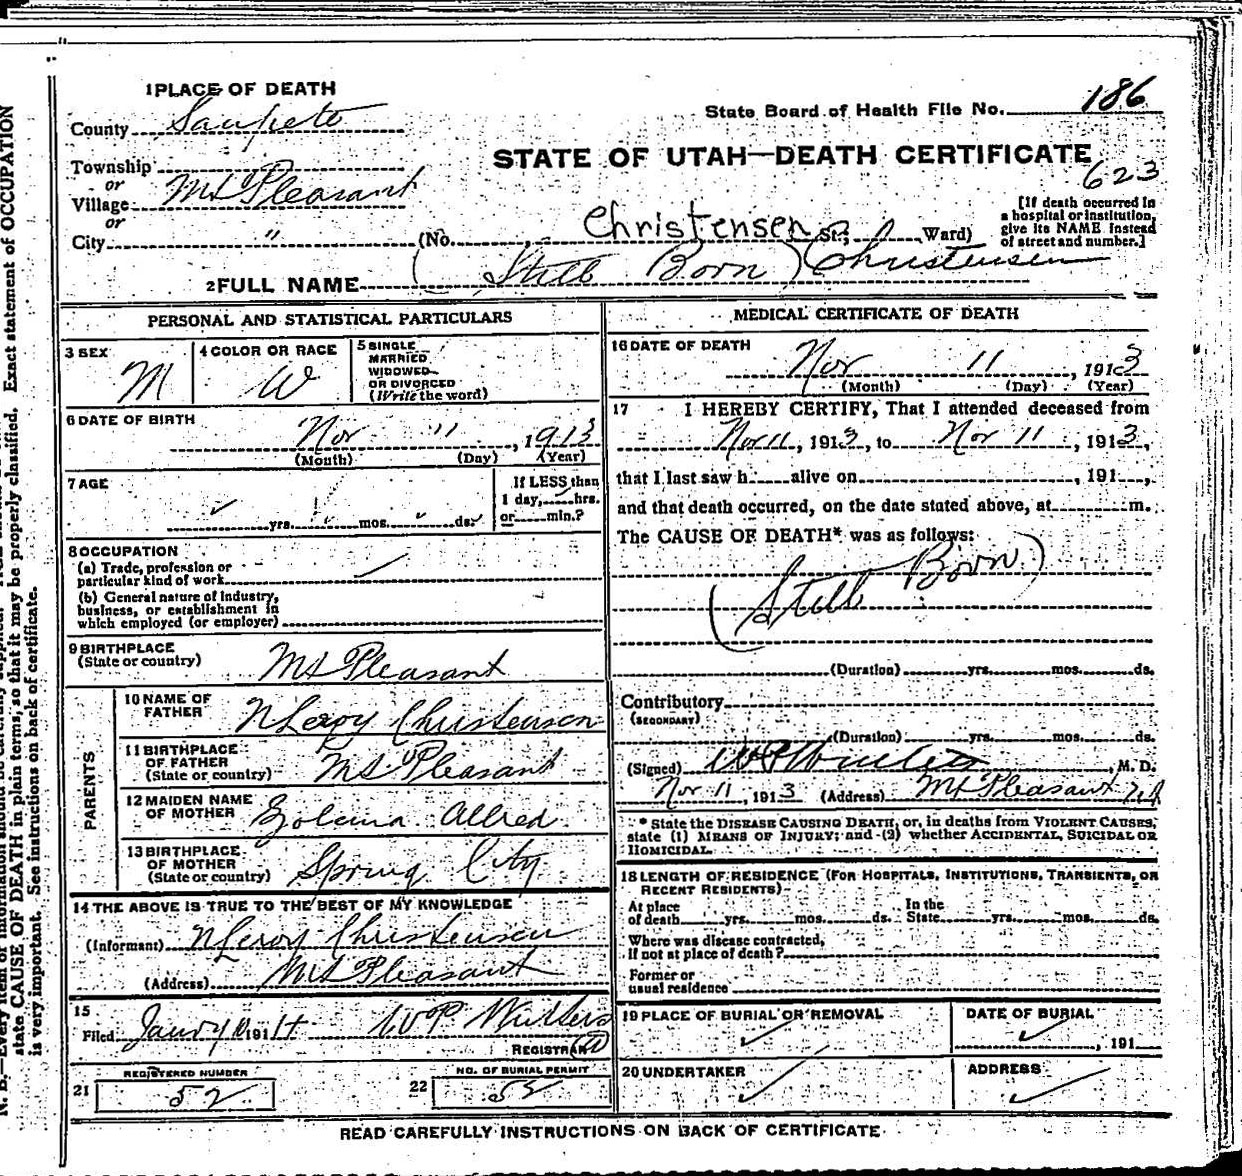 1 PLACE OF DEATH
County Sanpete
State Board of Health File No. 186
Township
or
Village Mt Pleasant
or
City "
STATE OF UTAH—DEATH CERTIFICATE
623
(No. Christensen St.; Ward)
[If death occurred in
a hospital or institution,
give its NAME instead
of street and number.]
2 FULL NAME (Still Born) Christensen
PERSONAL AND STATISTICAL PARTICULARS
3 SEX
M
4 COLOR OR RACE
W
5 SINGLE
MARRIED
WIDOWED
OR DIVORCED
(Write the word)
6 DATE OF BIRTH
Nov 11, 1913
(Month) (Day) (Year)
7 AGE
yrs. mos. ds.
If LESS than
1 day, hrs.
or min.?
8 OCCUPATION
(a) Trade, profession or
particular kind of work
(b) General nature of industry,
business, or establishment in
which employed (or employer)
9 BIRTHPLACE
(State or country) Mt Pleasant
PARENTS
10 NAME OF
FATHER N Leroy Christensen
11 BIRTHPLACE
OF FATHER
(State or country) Mt Pleasant
12 MAIDEN NAME
OF MOTHER Allred
13 BIRTHPLACE
OF MOTHER
(State or country) Spring City
14 THE ABOVE IS TRUE TO THE BEST OF MY KNOWLEDGE
(Informant) N Leroy Christensen
(Address) Mt Pleasant
15
Filed 1914 W P
REGISTRAR
REGISTERED NUMBER
21 52
NO. OF BURIAL PERMIT
22 52
MEDICAL CERTIFICATE OF DEATH
16 DATE OF DEATH
Nov 11, 1913
(Month) (Day) (Year)
17 I HEREBY CERTIFY, That I attended deceased from
Nov 11, 1913, to Nov 11, 1913,
that I last saw h alive on , 191 ,
and that death occurred, on the date stated above, at m.
The CAUSE OF DEATH* was as follows:
(Still Born)
(Duration) yrs. mos. ds.
Contributory
(SECONDARY)
(Duration) yrs. mos. ds.
(Signed) , M. D.
Nov 11, 1913 (Address) Mt Pleasant
* State the DISEASE CAUSING DEATH, or, in deaths from VIOLENT CAUSES,
state (1) MEANS OF INJURY; and (2) whether ACCIDENTAL, SUICIDAL OR
HOMICIDAL.
18 LENGTH OF RESIDENCE (FOR HOSPITALS, INSTITUTIONS, TRANSIENTS, OR
RECENT RESIDENTS)
At place
of death yrs. mos. ds.
In the
State yrs. mos. ds.
Where was disease contracted,
if not at place of death?
Former or
usual residence
19 PLACE OF BURIAL OR REMOVAL
DATE OF BURIAL
, 191
20 UNDERTAKER
ADDRESS
READ CAREFULLY INSTRUCTIONS ON BACK OF CERTIFICATE
state CAUSE OF DEATH in plain terms, so that it may be properly classified. Exact statement of OCCUPATION
is very important. See instructions on back of certificate.